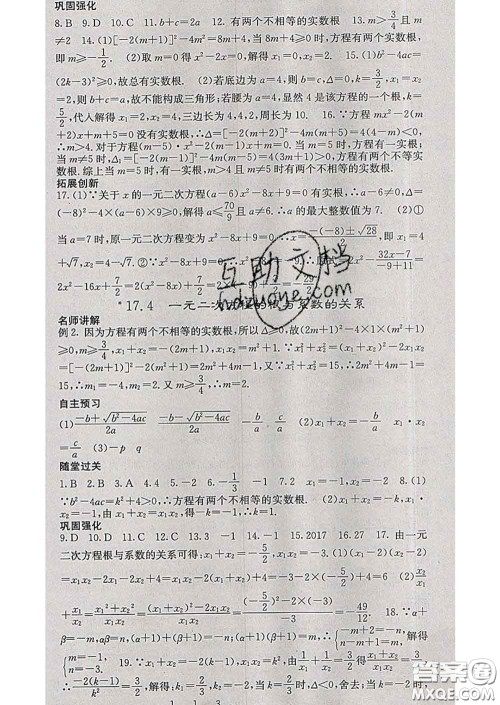 巩固强化
8. B 9. D 10. C 11. b+c=2a 12. 有两个不相等的实数根 13. m>3/4且m
≠2 14. (1)∵Δ=[-2(m+1)]²-4m²=8m+4,当8m+4≥0时,方程有两个实数根,
即m≥-1/2. (2)取m=0得x²-2x=0,解得x₁=0,x₂=2. 15. (1)∵b²-4ac=
(2k-3)²≥0,故总有实数根. (2)若底边为a=4,则b=c,则Δ=0,k=3/2,x₁=x₂
=2,则b+c=a,故不能构成三角形;若腰为a=4,显然4是该方程的一个根,k=
5/2,代入解得x₁=2,x₂=4,三边长为4,4,2,周长为10. 16. ∵方程mx²-2(m
+2)x+m+5=0没有实数根,∴Δ=[-2(m+2)]²-4m(m+5)=4(4-m)<0,
∴m>4. 对于方程(m-5)·x²-2(m-1)x+m=0. 当m=5时,方程有一个实
数根;当m≠5时,Δ₁=[-2(m-1)]²-4m(m-5)=12m+4. ∵m>4,∴Δ₁>0,方
程有两个实数根. 综上当m=5时,有一实根,m>4且m≠5时方程有两个实数根.
拓展创新
17. (1)∵关于x的一元二次方程(a-6)x²-8x+9=0有实根. ∴a-6≠0,Δ=
(-8)²-4×(a-6)×9≥0,解得a≤70/9且a≠6. ∴a的最大整数值为7. (2)①
当a=7时,原一元二次方程变为x²-8x+9=0. ∴x=(-(-8)±√28)/2,即x₁=4
+√7,x₂=4-√7. ②∵x²-8x+9=0,∴x²-8x=-9. ∴原式=2x²-(32x-7)/(-9+11)=
2x²-16x+7/2=2(x²-8x)+7/2=2×(-9)+7/2=-29/2.
*17.4 一元二次方程的根与系数的关系
名师讲解
例2. 因为方程有两个不相等的实数根,所以Δ≥0,故[2(m+1)]²-4×1×(m²+1)
≥0,m≥3/4,x₁+x₂=-2(m+1),x₁x₂=m²+1. ∵x₁²+x₂²=(x₁+x₂)²-2x₁x₂
=[-(2m+1)]²-2(m²+1)=2m²+4m-1. 又∵x₁²+x₂²=15,∴2m²+4m-1=
15,∴m₁=-4,m₂=2. 又m≥3/4,∴m=2.
自主预习
(1)(-b+√(b²-4ac))/2a (-b-√(b²-4ac))/2a -b/a c/a (2)x₁+x₂=-b/a x₁·x₂
=c/a (3)-p q
随堂过关
1. B 2. B 3. A 4. 4 5. -2 6. -1/3 -1 7. x₁=-1,x₂=2 8. (1)
∵b²-4ac=k²+4>0,∴方程有两个不相等的实数根. (2)x₁+x₂=-k,x₁·x₂
=-1,由于x₁+x₂=x₁·x₂,得-k=-1,∴k=1.
巩固强化
9. D 10. D 11. C 12. C 13. 3 -1 14. -1 -3 15. 2017 16. 27 17. 由一元
二次方程根与系数的关系可得:x₁+x₂=-5/2,x₁x₂=-3/2. (1)(x₁-2)(x₂-2)
=x₁x₂-2x₁-2x₂+4=x₁x₂-2(x₁+x₂)+4=-3/2-2×(-5/2)+4=15/2. (2)x₂/x₁
+x₁/x₂=(x₁²+x₂²)/(x₁x₂)=((x₁+x₂)²-2x₁x₂)/(x₁x₂)=((-5/2)²-2×(-3/2))/(-3/2)=-49/12. 18. ∵α+
β=-m,αβ=n;(α+1)+(β+1)=-m;(α+1)(β+1)=n,∴{-m+2=n, n-m+1=-m, 解得
{m=-1, n=-3. 19. ∵x₁+x₂=-2(k-1)/k²,x₁x₂=1/k²,又∵x₁+x₂+x₁x₂=-1/3,